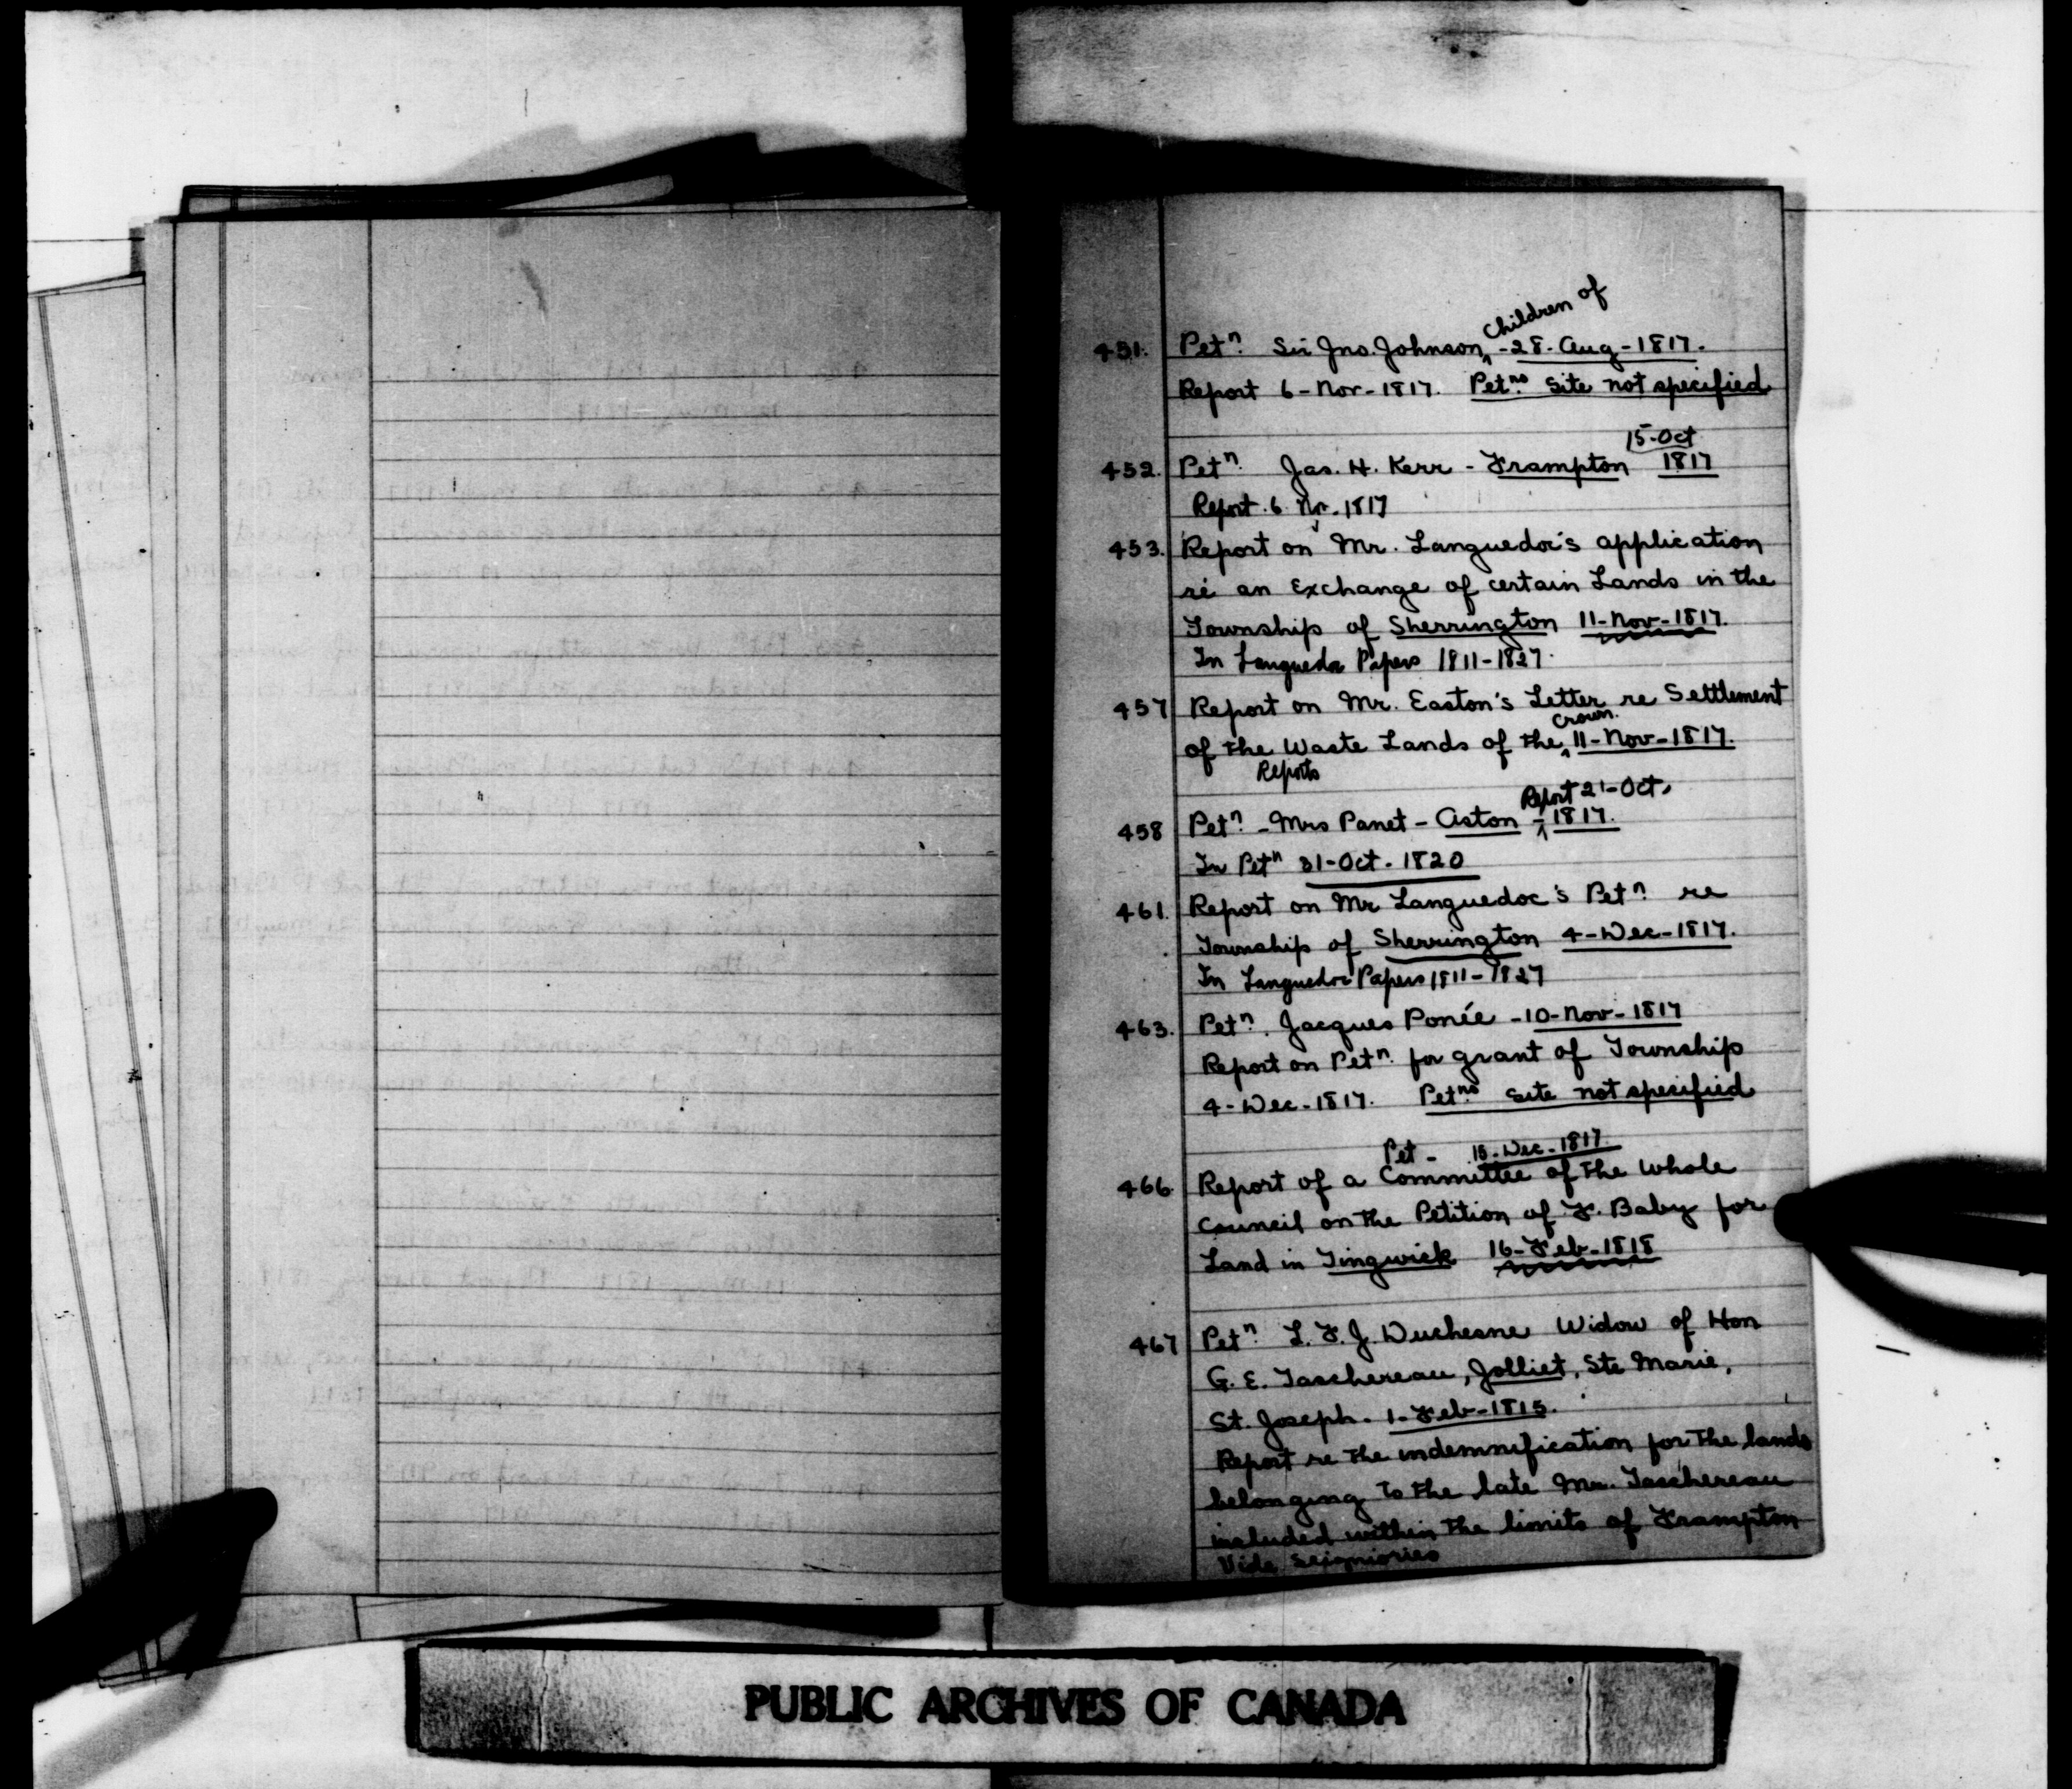 Children of
451. Petn. Sir Jno. Johnson, - 28. Aug - 1817.
Report 6 - Nov - 1817. Petns. Site not specified
15-Oct
452. Petn. Jas. H. Kerr - Frampton 1817
Report. 6 Nov. 1817
453. Report on Mr. Languedoc's application
re an Exchange of certain Lands in the
Township of Sherrington 11-Nov-1817.
In Languedoc Papers 1811-1827.
457 Report on Mr. Easton's Letter re Settlement
Crown.
of the Waste Lands of the 11-Nov-1817.
Reports
Report 21-Oct,
458 Petn. - Mrs Panet - Aston - 1817.
In Petn 31-Oct. 1820
461. Report on Mr Languedoc's Petn. re
Township of Sherrington 4-Dec-1817.
In Languedoc Papers 1811-1827
463. Petn. Jacques Ponée - 10-Nov-1817
Report on Petn. for grant of Township
4-Dec-1817. Petns. Site not specified
Pet - 15-Dec-1817.
466. Report of a Committee of the Whole
Council on the Petition of F. Baby for
Land in Tingwick 16-Feb-1818
467 Petn. L. F. J. Duchesne Widow of Hon
G. E. Taschereau, Jolliet, Ste Marie,
St. Joseph. 1-Feb-1815.
Report re the indemnification for the lands
belonging to the late Mr. Taschereau
included within the limits of Frampton
Vide Seigniories
PUBLIC ARCHIVES OF CANADA